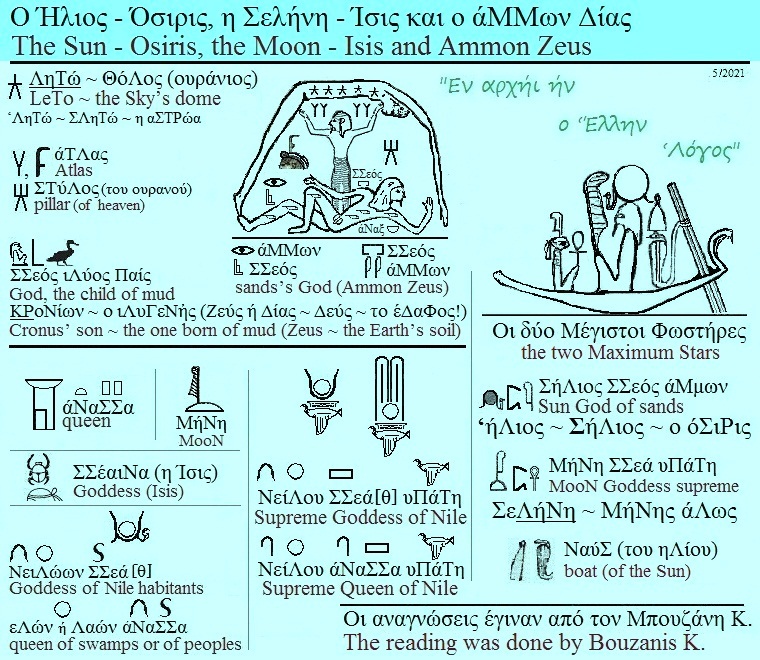 Ο Ήλιος - Όσιρις, η Σελήνη - Ίσις και ο άΜΜων Δίας
The Sun - Osiris, the Moon - Isis and Ammon Zeus
5/2021
ΛηΤώ ~ ΘόΛος (ουράνιος)
LeTo ~ the Sky's dome
‘ΛηΤώ ~ ΣΛηΤώ ~ η αΣΤΡώα
άΤΛας
Atlas
ΣΤύΛος (του ουρανού)
pillar (of heaven)
ΣΣεός ιΛύος Παίς
God, the child of mud
ΚΡοΝίων ~ ο ιΛυΓεΝής (Ζεύς ή Δίας ~ Δεύς ~ το έΔαΦος!)
Cronus' son ~ the one born of mud (Zeus ~ the Earth's soil)
ΣΣεός
άΝαξ
άΜΜων
ΣΣεός
ΣΣεός
άΜΜων
sands's God (Ammon Zeus)
"Εν αρχήι ήν
ο ‘Έλλην
‘Λόγος"
Οι δύο Μέγιστοι Φωστήρες
the two Maximum Stars
ΣήΛιος ΣΣεός άΜμων
Sun God of sands
‘ήΛιος ~ Σήλιος ~ ο όΣιΡις
ΜήΝη ΣΣεά υΠάΤη
MooN Goddess supreme
ΣεΛήΝη ~ ΜήΝης άΛως
ΝαύΣ (του ηΛίου)
boat (of the Sun)
άΝαΣΣα
queen
ΜήΝη
MooN
ΣΣέαιΝα (η Ίσις)
Goddess (Isis)
ΝειΛώων ΣΣεά [θ]
Goddess of Nile habitants
εΛών ή Λαών άΝαΣΣα
queen of swamps or of peoples
ΝείΛου ΣΣεά[θ] υΠάΤη
Supreme Goddess of Nile
ΝείΛου άΝαΣΣα υΠάΤη
Supreme Queen of Nile
Οι αναγνώσεις έγιναν από τον Μπουζάνη Κ.
The reading was done by Bouzanis K.